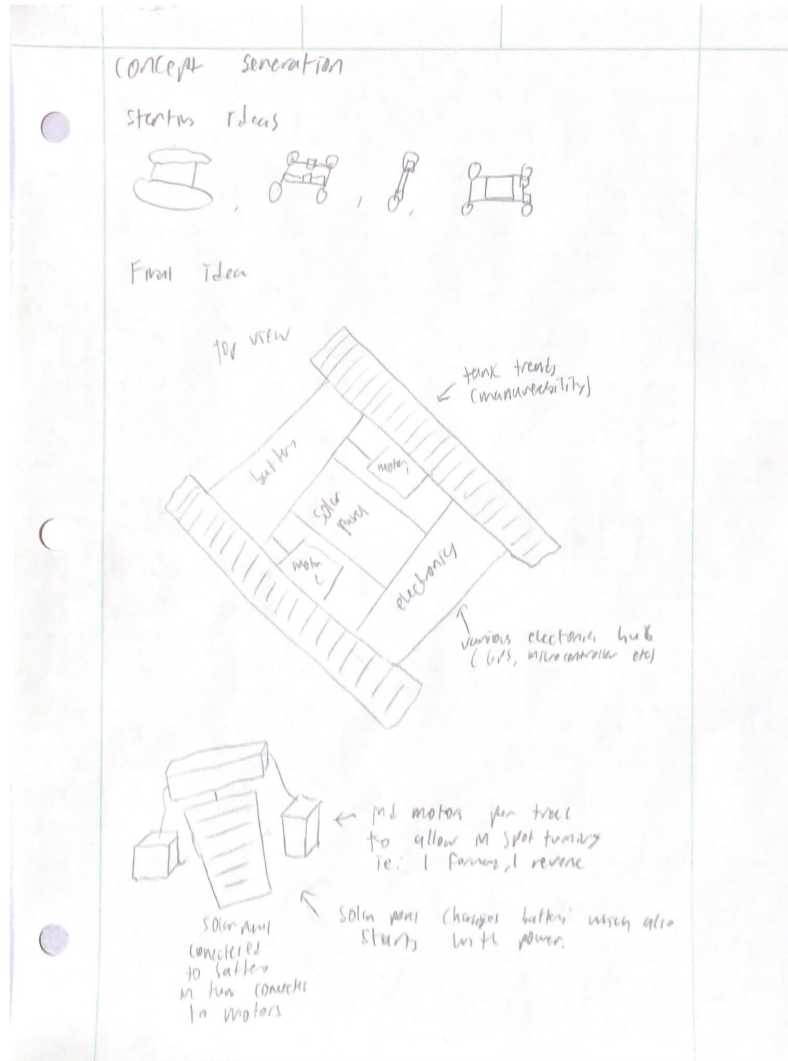 Concept Generation
Starting Ideas
Final Idea
top view
tank treads
(manuverability)
battery
motor
solar
panel
motor
electronics
various electronic hub
(GPS, microcontroller etc)
motors per
to allow in spot turning
ie: 1 forway, 1 reverse
solar panel charges battery which also
starts with power.
solar panel
connected
to battery
in turn connected
to motors